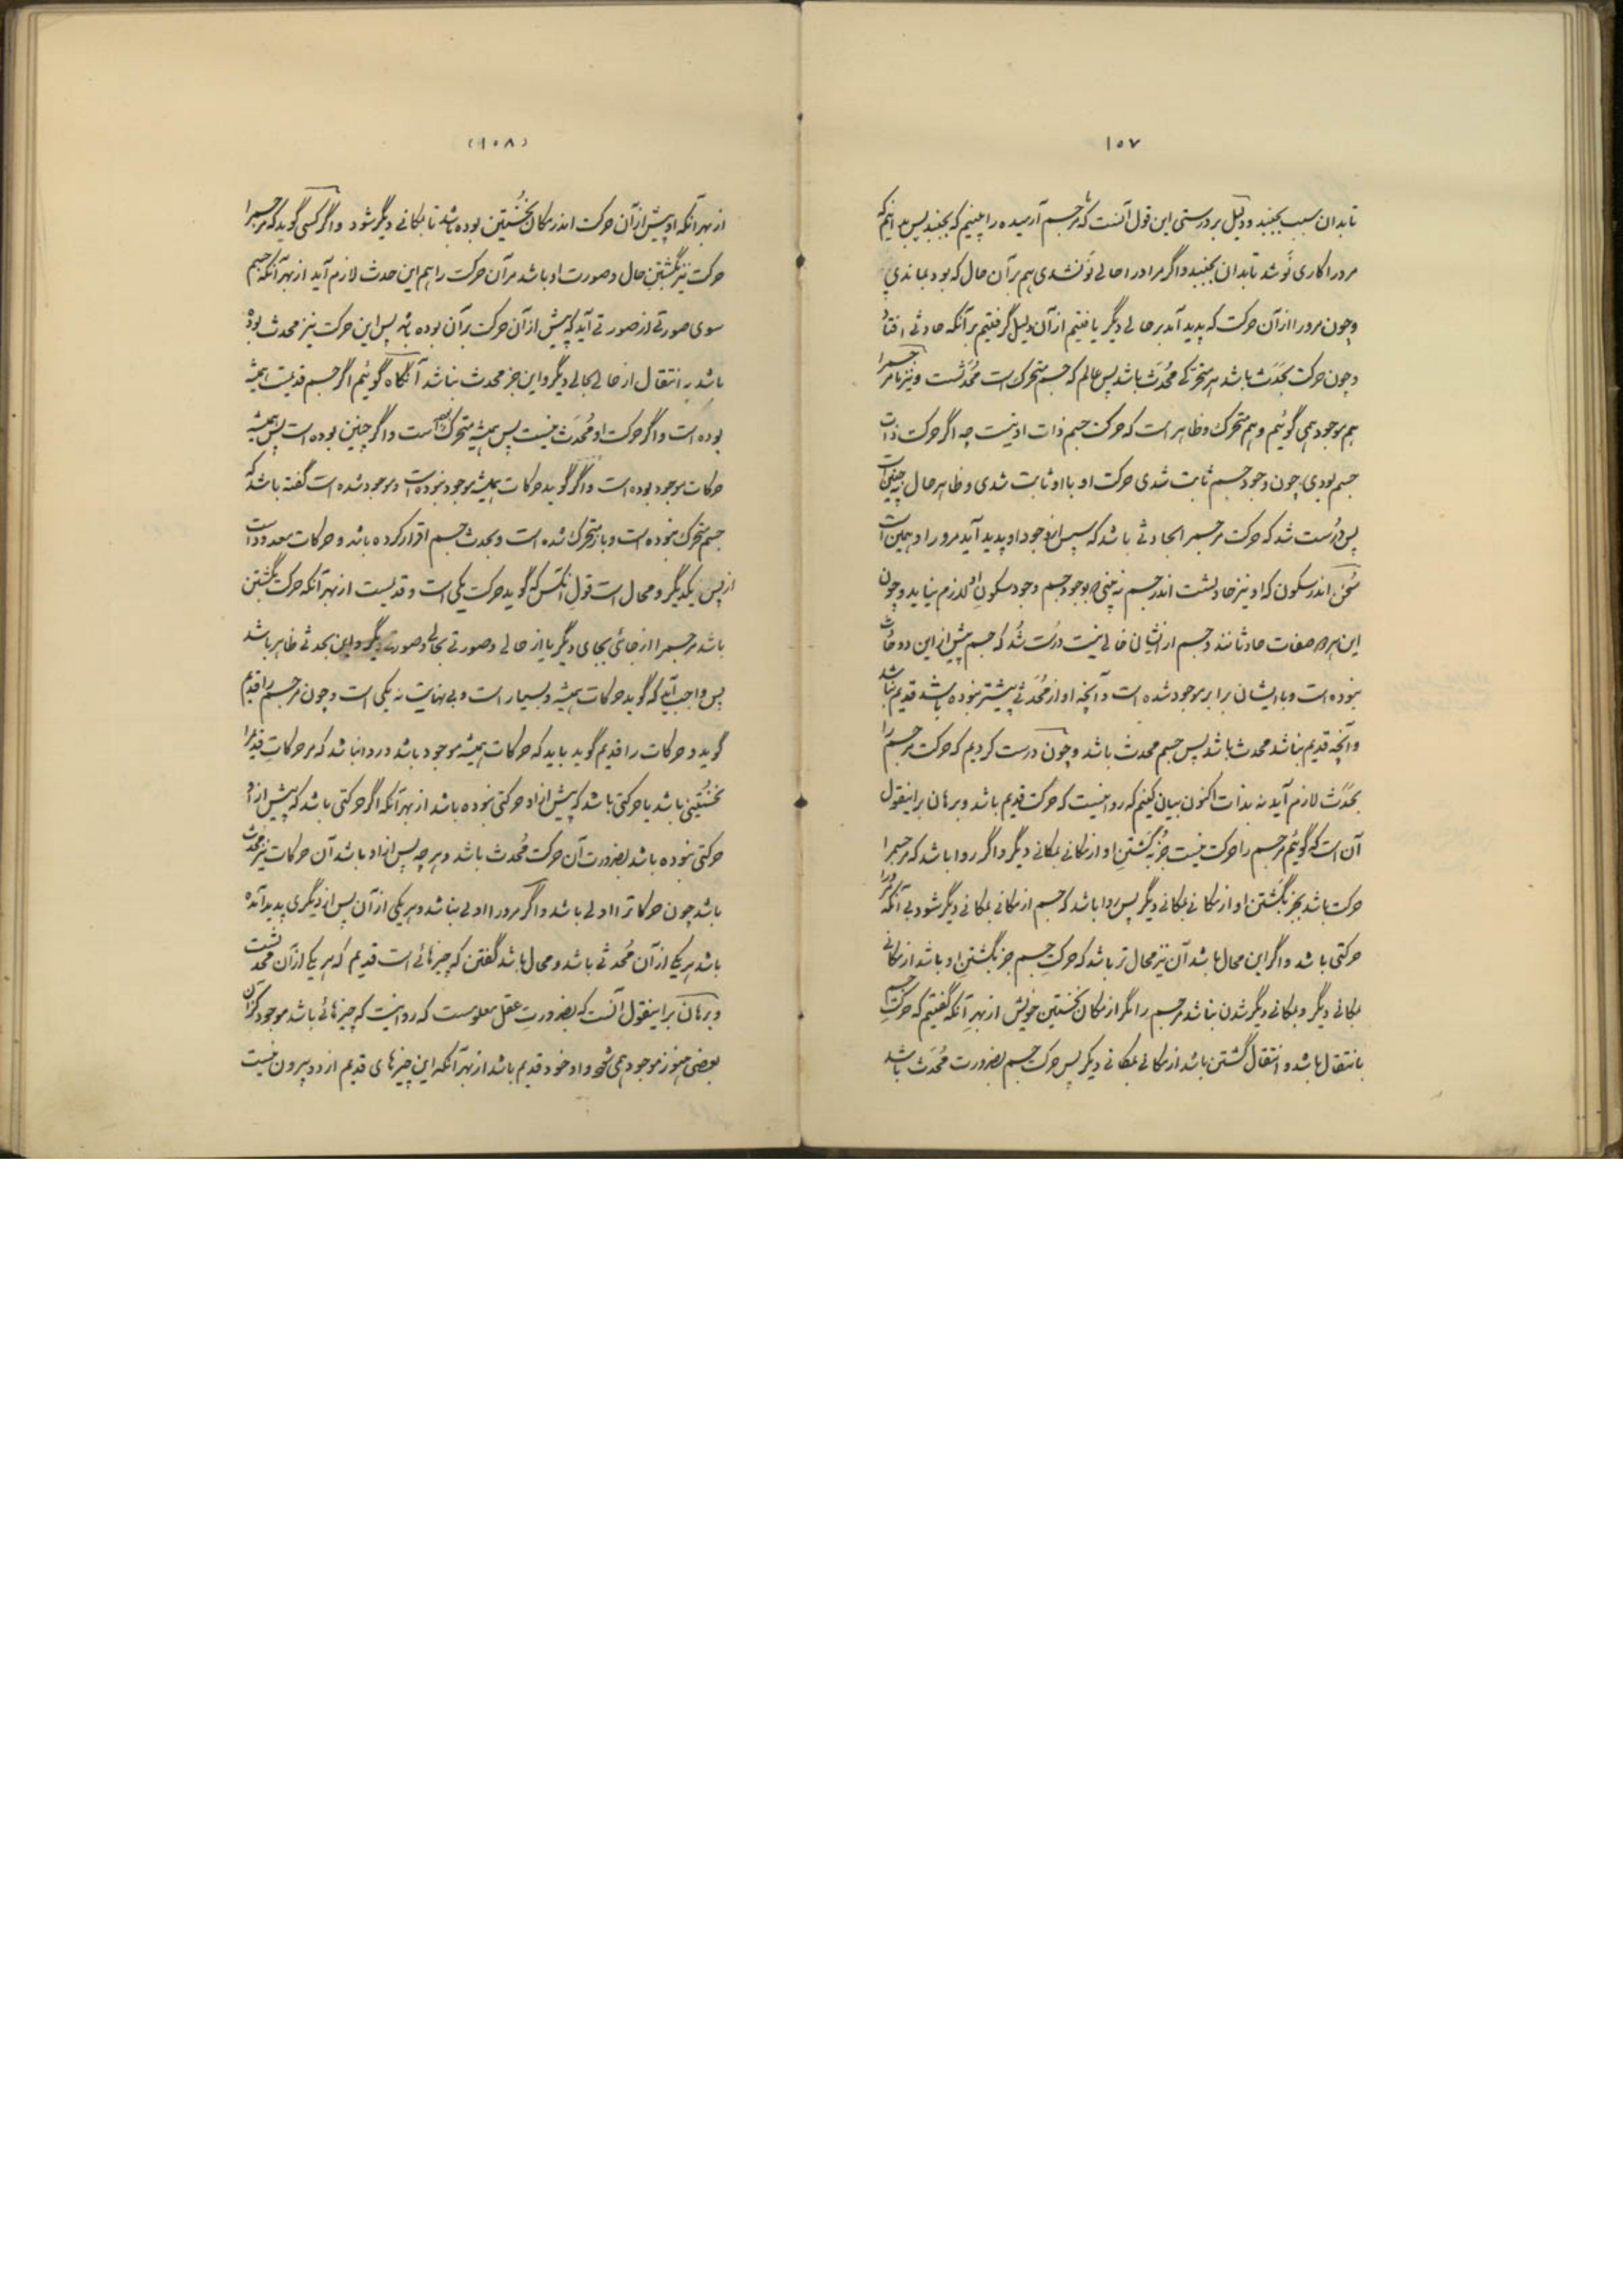 ۱۰۷
تابدان سبب بجنبد ودلیل بر درستی این قول آنست که مر جسم آرمیده را بینیم که بجنبد پس بدانیم که
مرورا کاری نَو شد تابدان بجنبید واگر مر اورا حالے نَو نشدی هم بر آن حال که بود بماندیے
وچون مرورا از آن حرکت که پدید آمد بر حالے دیگر یافتیم از آن دلیل گرفتیم بر آنکه حادثے افتاد
وچون حرکت بحَدَث باشد هر متحرّکے مُحدَث باشد پس عالم که جسم متحرک است مُحدَثست ونیز ما مر جسم را
هم موجود همی گوئیم وهم متحرک وظاهر است که حرکت جسم ذات او نیست چه اگر حرکت ذات
جسم بودی چون وجود جسم ثابت شدی حرکت او با او ثابت شدی وظاهر حال نه چنین است
پس دُرست شد که حرکت مر جسم را بحادثے باشد که سپس از وجود او پدید آید مرورا وهمین است
سُخن اندر سکون که او نیز حادثست اندر جسم نه بینی که بوجود جسم وجود سکونِ او لازم نیاید وچون
این هر دو صفات حادثانند وجسم از ایشان خالے نیست درُست شُد که جسم پیش از این دو حادث
نبوده است وبا ایشان برابر موجود شده است وآنچه او از مُحدَثے پیشتر نبوده باشد قدیم نباشد
وآنچه قدیم نباشد محدث باشد پس جسم محدث باشد وچون درست کردیم که حرکت مر جسم را
بحَدَث لازم آید نه بذات اکنون بیان کنیم که روا نیست که حرکت قدیم باشد وبرهان بر اینقول
آن است که گوئیم مر جسم را حرکت نیست جز بگشتنِ او از مکانے بمکانے دیگر واگر روا باشد که مر جسم را
حرکت باشد بجز بگشتن او از مکانے بمکانے دیگر پس روا باشد که جسم از مکانے بمکانے دیگر شود بے آنکه مرورا
حرکتی باشد واگر این محال باشد آن نیز محال تر باشد که حرکتِ جسم جز بگشتنِ او باشد از مکانے
بمکانے دیگر وبمکانے دیگر شدن نباشد مر جسم را مگر از مکان نخستین خویش از بهرِ آنکه گفتیم که حرکتِ جسم
بانتقال باشد وانتقال گشتن باشد از مکانے بمکانے دیگر پس حرکت جسم بضرورت مُحدَث باشد
(۱۰۸)
از بهر آنکه او پیش از آن حرکت اندر مکان نخُستین بوده باشد تا بمکانے دیگر شود واگر کسی گوید که مر جسم را
حرکت نیز بگشتنِ حال وصورت او باشد مر آن حرکت را هم این حدث لازم آید از بهر آنکه جسم
سوی صورتے از صورتے آید که پیش از آن حرکت بر آن بوده باشد پس این حرکت نیز محدث بود
باشد به انتقال از حالے بحالے دیگر واین جز محدث نباشد آنگاه گوئیم اگر جسم قدیمست همیشه
بوده است واگر حرکت او مُحدَث نیست پس همیشه متحرک بوده است واگر چنین بوده است پس همیشه
حرکات موجود بوده است واگر گوید حرکات همیشه موجود نبوده است وموجود شده است گفته باشد که
جسم متحرک نبوده است وباز متحرک شده است وبحدث جسم اقرار کرده باشد وحرکات معدود است
از پس یکدیگر ومحال است قول آنکس که گوید حرکت یکی است وقدیمست از بهر آنکه حرکت بگشتن
باشد مر جسم را از جائی بجای دیگر یا از حالے وصورتے بحالے وصورتے دیگر واین بحدثے ظاهر باشد
پس واجب آید که گوید حرکات همیشه وبسیار است وبے نهایت نه یکی است وچون مر جسم را قدیم
گوید وحرکات را قدیم گوید باید که حرکات همیشه موجود باشد وروا نباشد که مر حرکاتِ قدیم را
نخُستینے باشد یا حرکتی باشد که پیش از او حرکتی نبوده باشد از بهر آنکه اگر حرکتی باشد که پیش از او
حرکتی نبوده باشد بضرورت آن حرکت مُحدث باشد وهر چه پس از او باشد آن حرکات نیز محدث
باشد چون حرکات را اولے باشد واگر مرورا اولے نباشد وهر یکی از آن پس از دیگری پدید آمده
باشد هر یکے از آن مُحدثے باشد ومحال باشد گفتن که چیزهائے است قدیم که هر یکے از آن محدثست
وبرهان بر اینقول آنست که بضرورتِ عقل معلومست که روا نیست که چیزهائے باشد موجود کز آن
بعضی هنوز موجود همی شود واو خود قدیم باشد از بهر آنکه این چیزهای قدیم از دو بیرون نیست